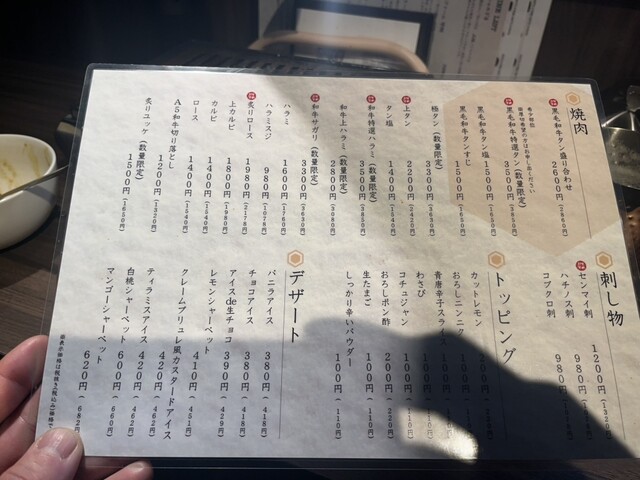 焼肉
黒毛和牛タン盛り合わせ 2600円(2860円)
黒毛和牛特選タン(数量限定) 3500円(3850円)
黒毛和牛タン塩 1500円(1650円)
黒毛和牛タンすじ 1500円(1650円)
極タン(数量限定) 3300円(3630円)
上タン 2200円(2420円)
タン塩 1400円(1540円)
和牛特選ハラミ(数量限定) 3500円(3850円)
和牛上ハラミ(数量限定) 2800円(3080円)
和牛サガリ(数量限定) 3300円(3630円)
ハラミ 1600円(1760円)
ハラミスジ 980円(1078円)
炙りロース 1980円(2178円)
上カルビ 1800円(1980円)
カルビ 1400円(1540円)
ロース 1400円(1540円)
A5和牛切り落とし 1200円(1320円)
炙りユッケ(数量限定) 1500円(1650円)
刺し物
センマイ刺 1200円(1320円)
ハチノス刺 980円
コブクロ刺 980円
トッピング
カットレモン
おろしニンニク
青唐辛子スライス 100円
わさび 100円
コチュジャン 100円
おろしポン酢 200円(220円)
生たまご 100円(110円)
しっかり辛いパウダー 100円(110円)
デザート
バニラアイス 380円(418円)
チョコアイス 380円(418円)
アイスde生チョコ 390円(429円)
レモンシャーベット
クレームブリュレ風カスタードアイス 410円(451円)
ティラミスアイス 420円(462円)
白桃シャーベット 600円(660円)
マンゴーシャーベット 620円(682円)